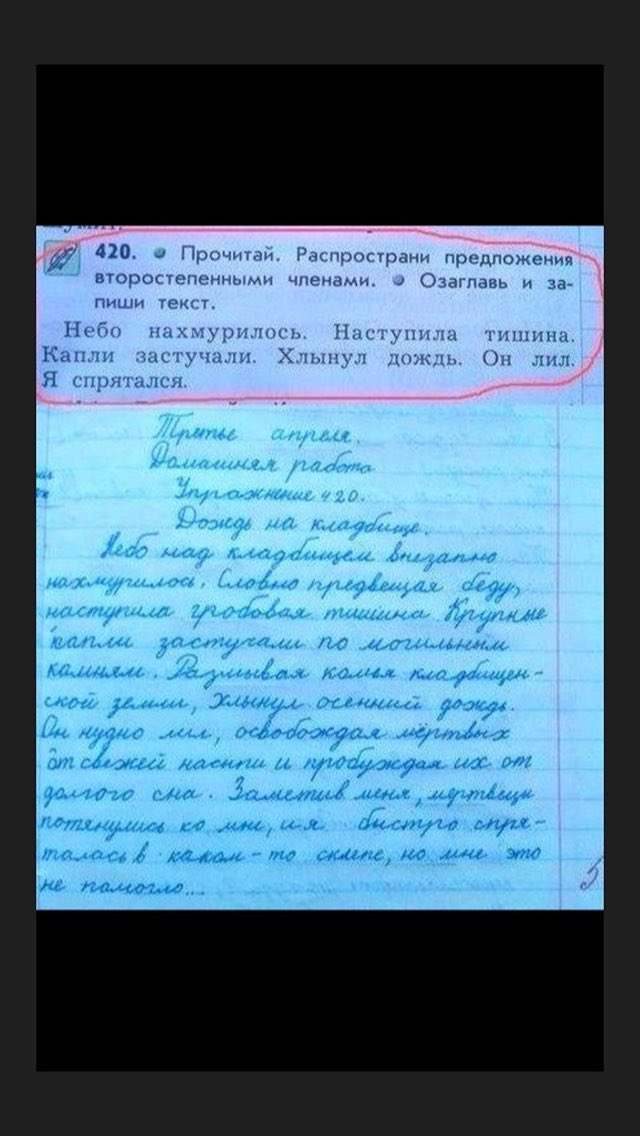 420. Прочитай. Распространи предложения
второстепенными членами. Озаглавь и за-
пиши текст.
Небо нахмурилось. Наступила тишина.
Капли застучали. Хлынул дождь. Он лил.
Я спрятался.
Третье апреля.
Домашняя работа
Упражнение 420.
Дождь на кладбище.
Небо над кладбищем внезапно
нахмурилось. Словно предвещая беду,
наступила гробовая тишина. Крупные
капли застучали по могильным
камням. Размывая комья кладбищен-
ской земли, хлынул осенний дождь.
Он нудно лил, освобождая мёртвых
от свежей насыпи и пробуждая их от
долгого сна. Заметив меня, мертвецы
потянулись ко мне, и я быстро спря-
талась в каком-то склепе, но мне это
не помогло...
5